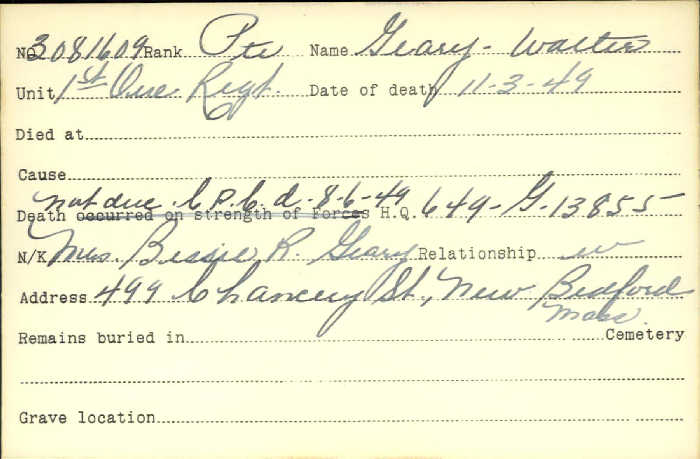 No 3081609 Rank Pte Name Geary - Walter
Unit 1st Que Regt. Date of death 11-3-49
Died at
Cause
not due C.P.C. d. 8-6-49
Death occurred on strength of Forces H.Q. 649-G-13855
N/K Mrs. Bessie R. Geary Relationship w
Address 499 Chancery St., New Bedford
Mass.
Remains buried in Cemetery
Grave location